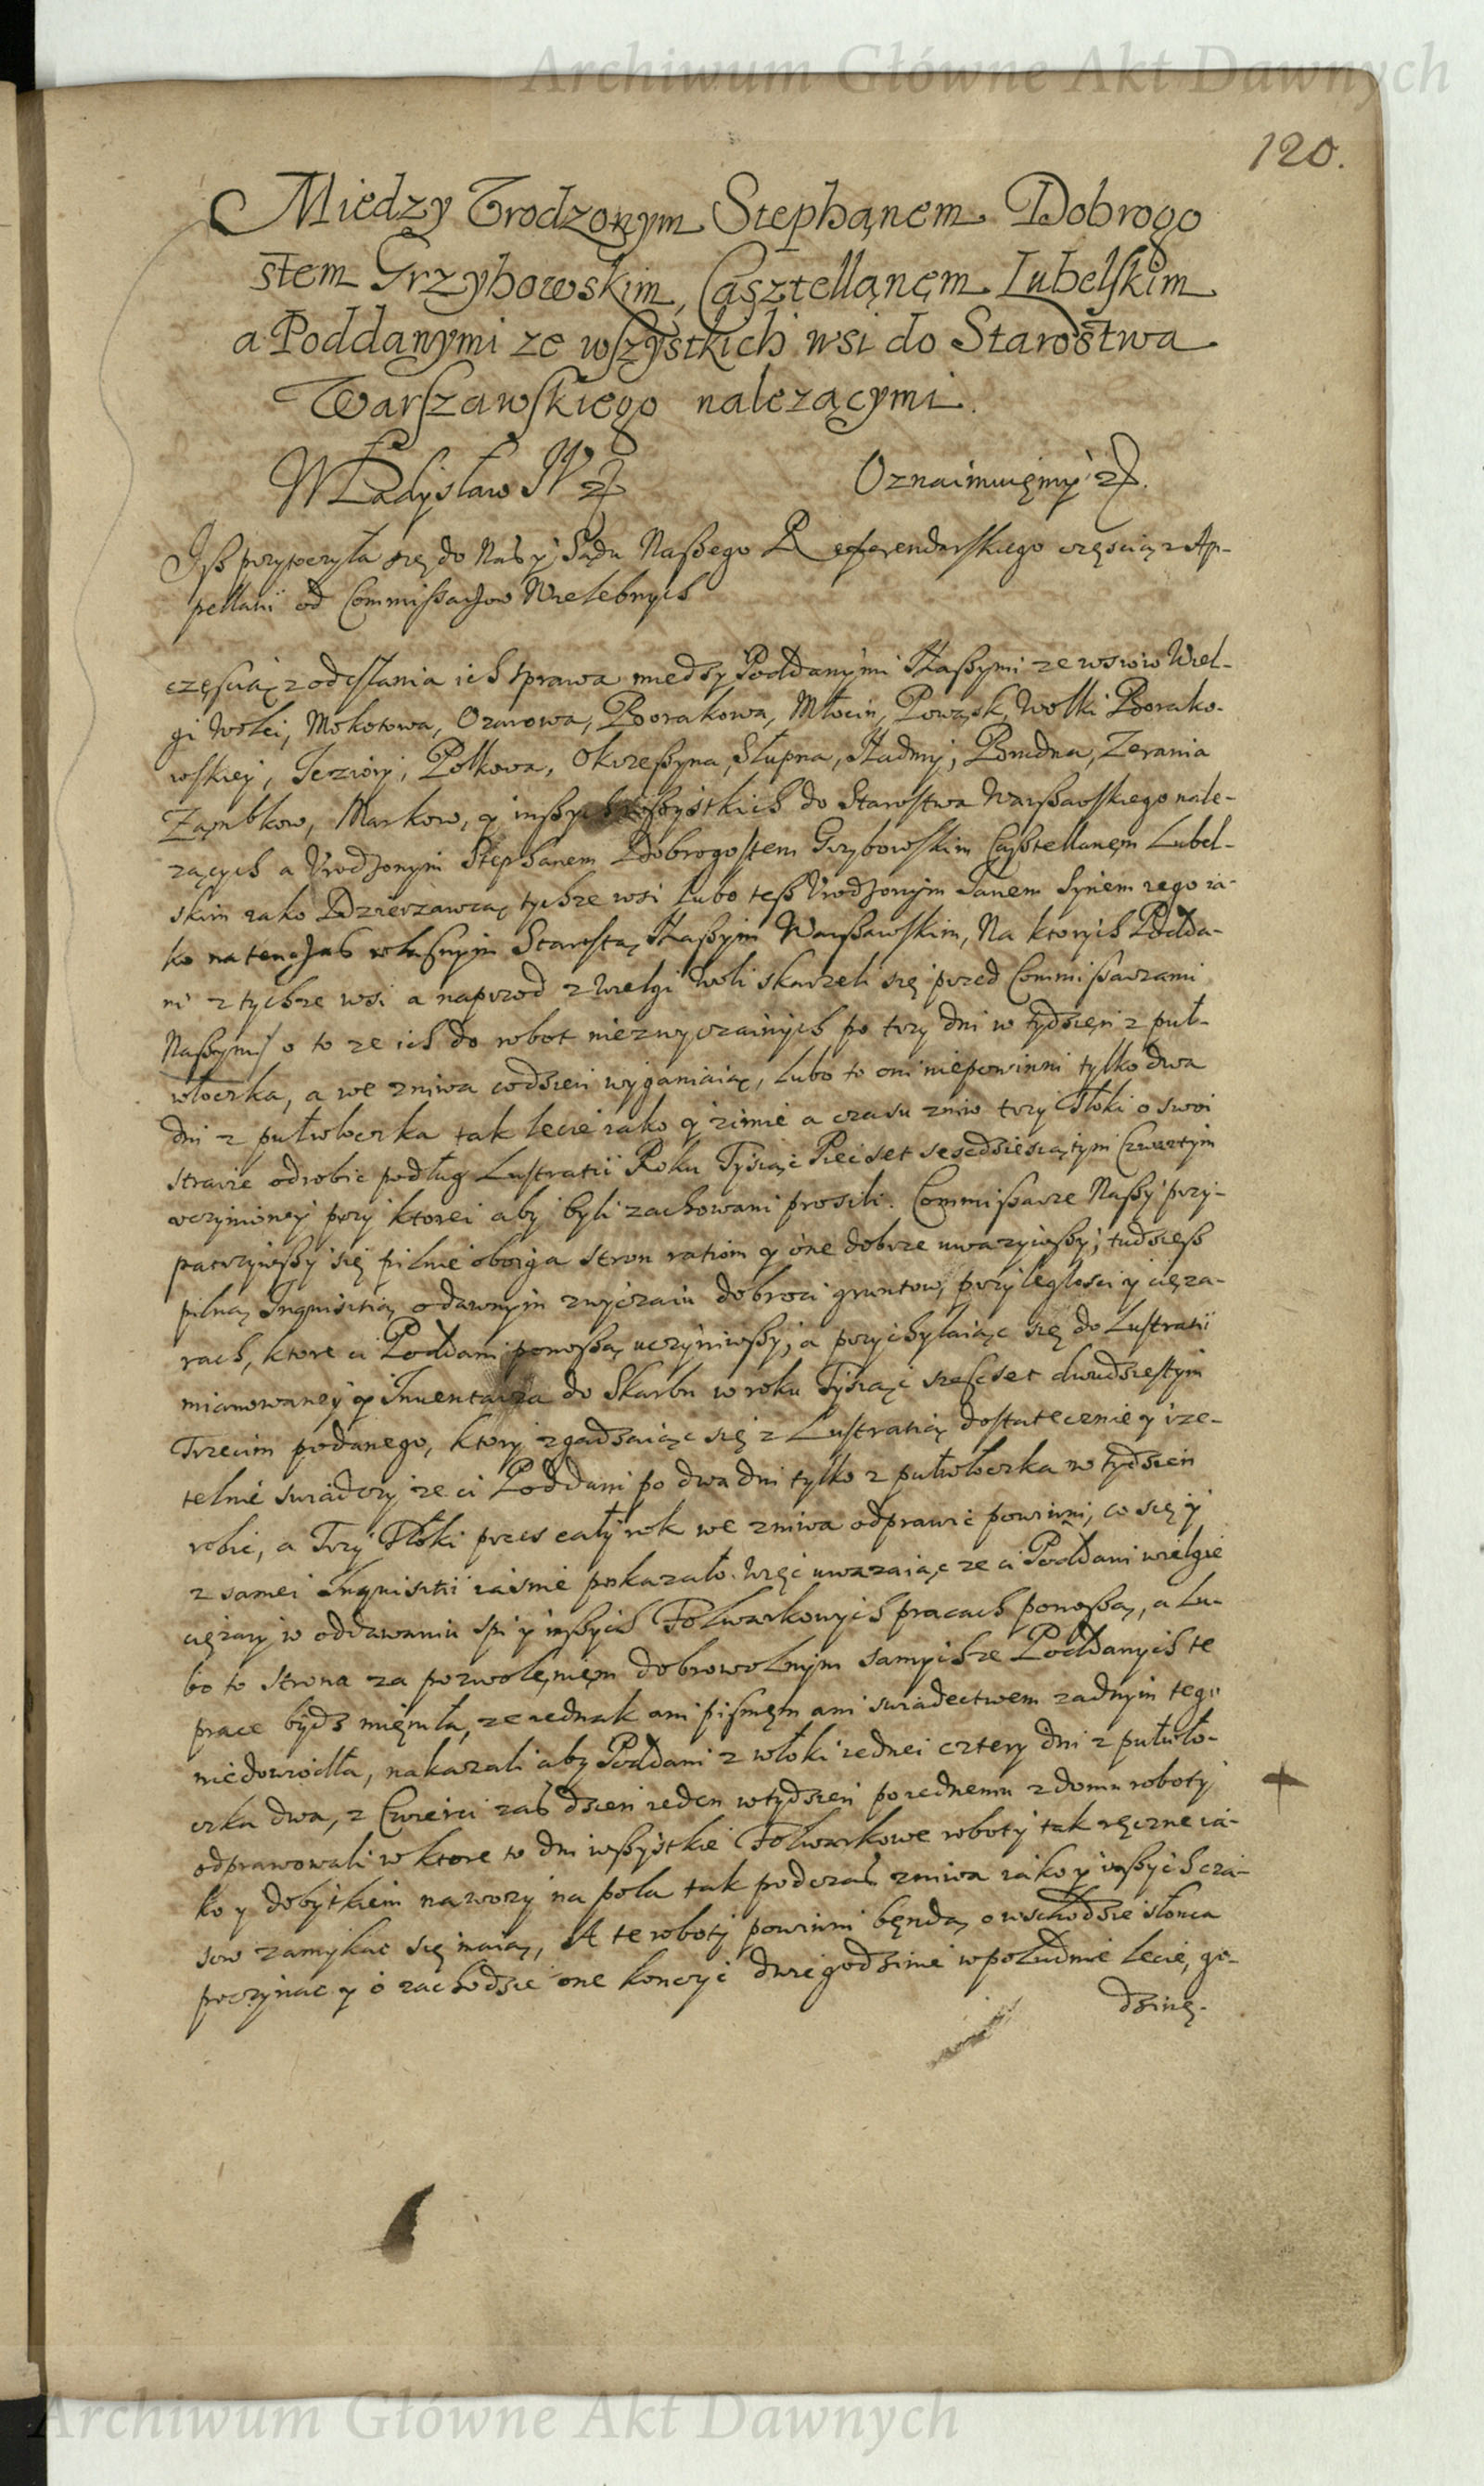 Archiwum Główne Akt Dawnych
120.
Miedzy Vrodzonym Stephąnem Dobrogo
stem Grzybowskim, Cąsztelląnęm Lubelskim
a Poddanymi ze wszystkich wsi do Starostwa
Warszawskiego nalezącymi.
Władysław IV
Oznaimuięmy
Isz przytoczyła się do Nas y Sądu Naszego Referendarskiego częscią z Ap-
pellatii od Commissarzow Wielebnych
częscią z odesłania ich sprawa miedzy Poddanymi Naszymi ze wsiow Wiel-
gi Woli, Mokotowa, Ozarowa, Borakowa, Młocin, Powązk, Wolki Borako-
wskiey, Jeziory, Polkowa, Okrzeszyna, Słupna, Brudna, Zerania
Ząmbkow, Markow, y inszych wszystkich do Starostwa Warszawskiego nale-
zących a Vrodzonym Stephanem Dobrogostem Grzybowskim Casztellanęm Lubel-
skim iako Dzierzawcą tychze wsi lubo tesz Vrodzonym Janem Synem iego ia-
ko na ten czas własnym Starostą Naszym Warszawskim, Na ktorych Podda-
ni z tychze wsi a naprzod z Wielgi Woli skarzeli się przed Commissarzami
Naszymi o to ze ich do robot niezwyczainych po trzy dni w tydzień z puł-
włoczka, a we zniwa codzien wyganiaią, lubo to oni niepowinni tylko dwa
dni z pułwłoczka tak lecie iako y zimie a czasu zniw trzy Tłoki o swoi
strawie odrobic podług Lustratii Roku Tysiąc Piecset szescdziesiątym Czwartym
uczynioney przy ktorei aby byli zachowani prosili. Commissarze Naszy przy-
patrzywszy się pilnie oboiga stron ratiom y one dobrze uwazywszy, tudziesz
pilną Inquisitią o dawnym zwyczaiu dobroci gruntow, przyległosci y cięza-
rach, ktore ci Poddani ponoszą uczyniwszy, a przychylaiąc się do Lustratii
mianowaney y Inuentarza do Skarbu w roku Tysiąc szescset dwudziestym
Trzecim podanego, ktory zgadzaiąc się z Lustratią dostatecznie y rze-
telnie swiadczy ze ci Poddani po dwa dni tylko z pułwłoczka w tydzien
robic, a Trzy Tłoki przes cały rok we zniwa odprawic powinni, co się y
z samei Inquisitii iasnie pokazało. Więc uwazaiąc ze ci Poddani wielgie
cięzary w oddawaniu spi y inszych Folwarkowych pracach ponoszą, a lu-
bo to strona za pozwolęnięm dobrowolnym samychze Poddanych te
prace bydz mięniła, ze iednak ani pismęm ani swiadectwem zadnym tego
niedowiodła, nakazali aby Poddani z włoki iednei cztery dni z pułwło-
czka dwa, z Cwierci zas dzien ieden w tydzien po iednemu z domu roboty
odprawowali w ktore to dni wszystkie Folwarkowe roboty tak ręczne ia-
ko y dobytkiem nawozy na pola tak podczas zniwa iako y inszych cza-
sow zamykac się maią, A te roboty powinni bęndą o wschodzie słonca
poczynac y o zachodzie one konczyc dwie godzinie w południe lecie, go-
dzinę.
Archiwum Główne Akt Dawnych